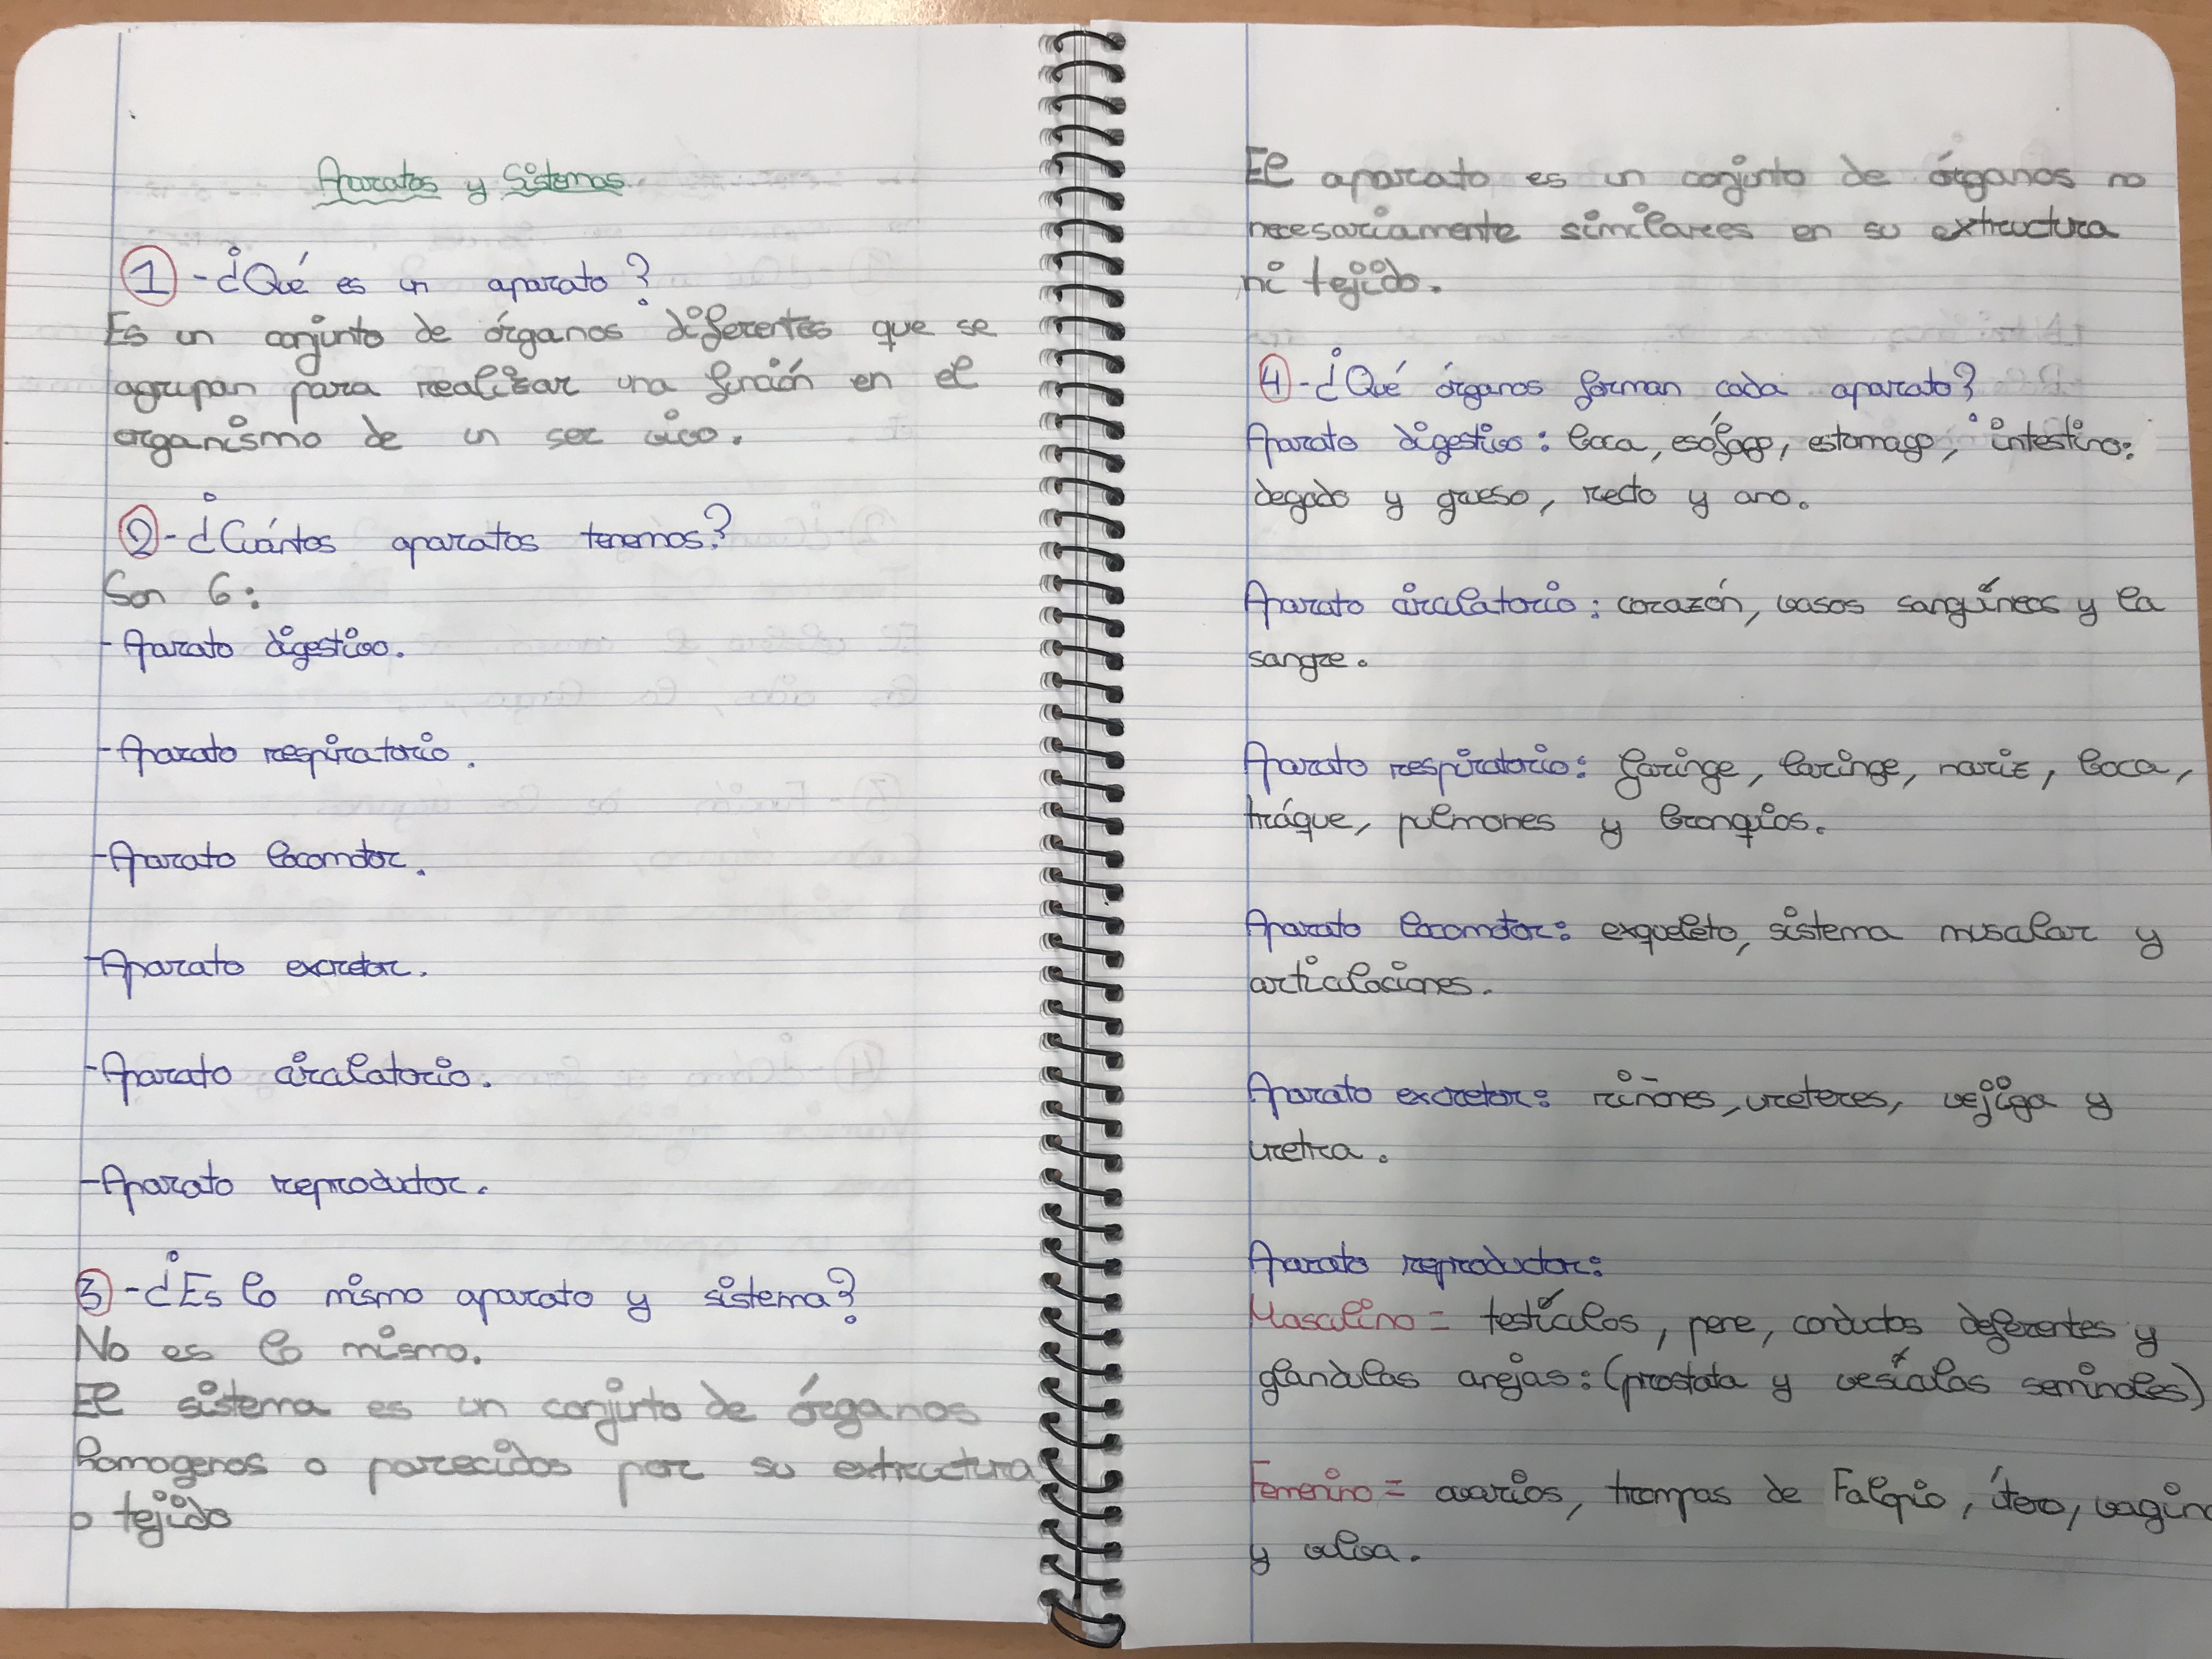 Aparatos y Sistemas
1 - ¿Qué es un aparato?
Es un conjunto de órganos diferentes que se
agrupan para realizar una función en el
organismo de un ser vivo.
2 - ¿Cuántos aparatos tenemos?
Son 6:
- Aparato digestivo.
- Aparato respiratorio.
- Aparato locomotor.
- Aparato excretor.
- Aparato circulatorio.
- Aparato reproductor.
3 - ¿Es lo mismo aparato y sistema?
No es lo mismo.
El sistema es un conjunto de órganos
homogenos o parecidos por su extructura
o tejido
El aparato es un conjunto de órganos no
necesariamente similares en su extructura
ni tejido.
4 - ¿Qué órganos forman cada aparato?
Aparato digestivo: boca, esófago, estomago, intestino:
degado y grueso, recto y ano.
Aparato circulatorio: corazón, vasos sanguíneos y la
sangre.
Aparato respiratorio: faringe, laringe, nariz, boca,
tráque, pulmones y bronquios.
Aparato locomotor: exqueleto, sistema muscular y
articulaciones.
Aparato excretor: riñones, ureteres, vejiga y
uretra.
Aparato reproductor:
Masculino = testículos, pene, conductos deferentes y
glandulas anejas: (prostata y vesículas seminales)
Femenino = ovarios, trompas de Falopio, útero, vagina
y vulva.